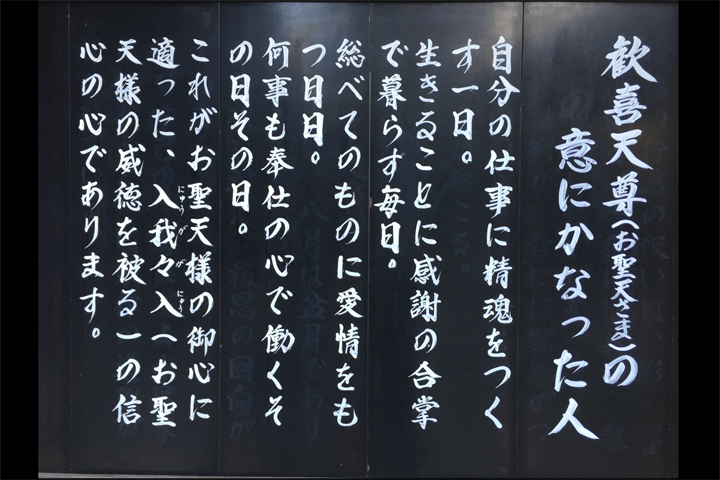 歓喜天尊(お聖天さま)の
意にかなった人
自分の仕事に精魂をつく
す一日。
生きることに感謝の合掌
で暮らす毎日。
総べてのものに愛情をも
つ日日。
何事も奉仕の心で働くそ
の日その日。
これがお聖天様の御心に
適った、入我々入(お聖
天様の威徳を被る)の信
心の心であります。
にゅうががにゅう